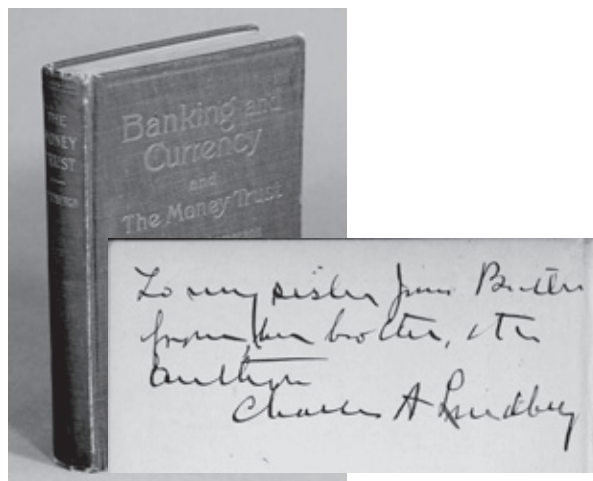 THE
MONEY
TRUST
Banking and
Currency
and
The Money Trust
To my sister
from her brother, the
author
Charles A Lindbergh